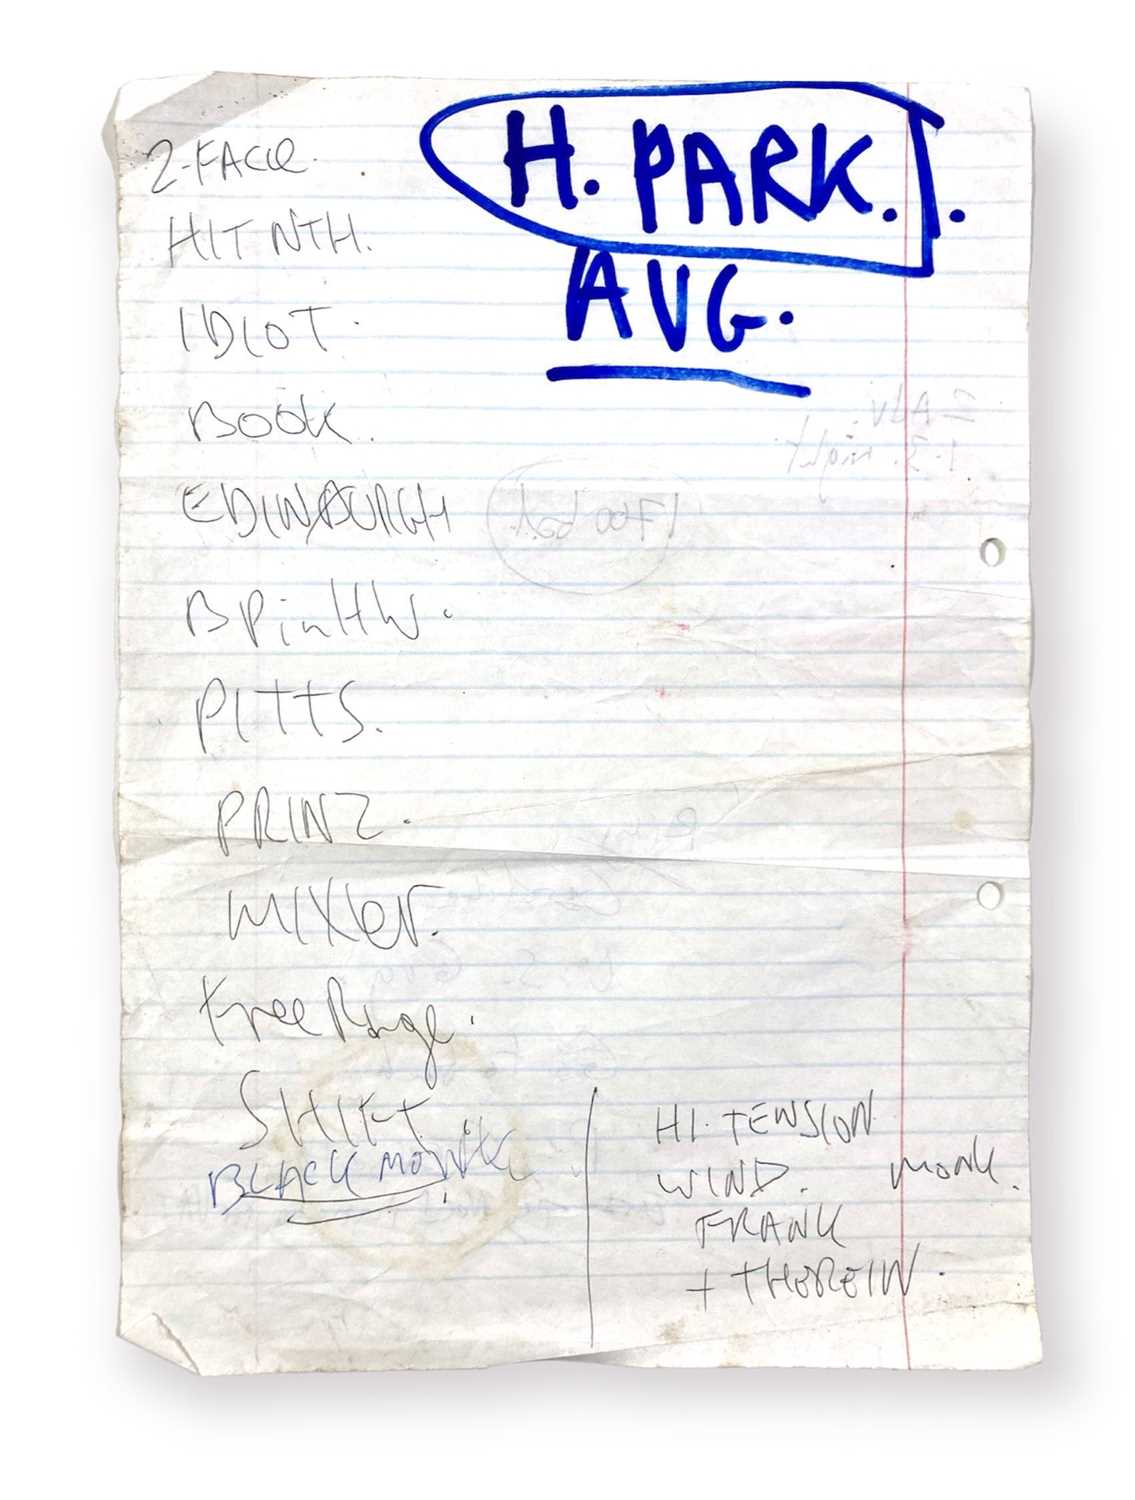 H. PARK.
AVG.
2-FACE.
HIT NTH.
IDIOT.
BOOK.
EDINBURGH
B Pin HW.
PITTS.
PRINZ.
MIXER.
Free Range.
SHIFT.
BLACK MONK
HI. TENSION
WIND. MONK.
FRANK
+ THEREIN.